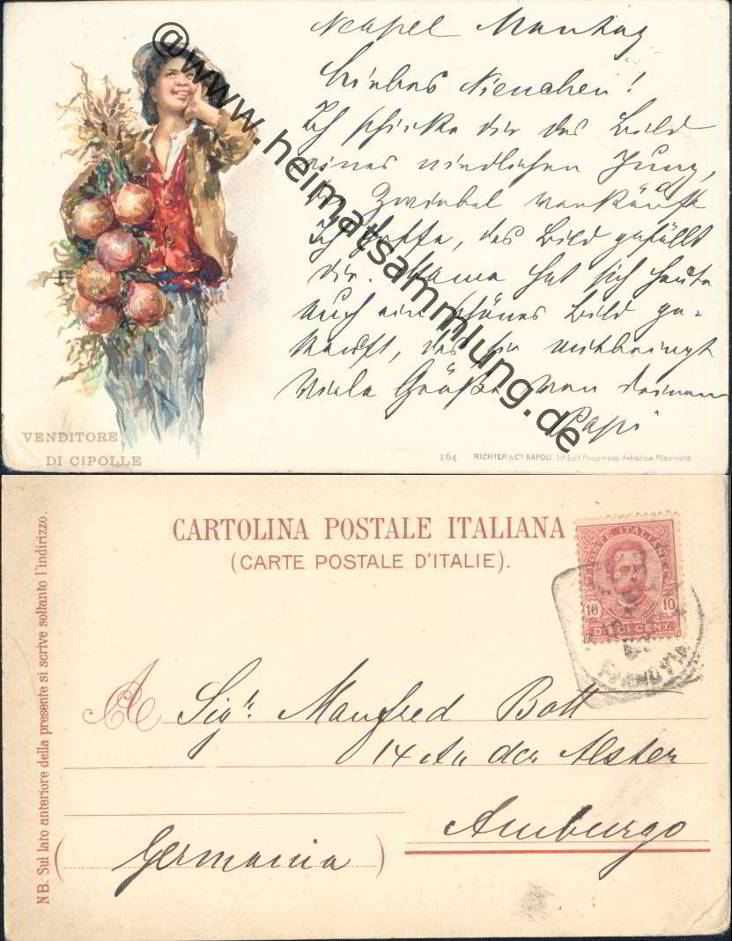 Neapel Montag
Liebes Nienchen!
Ich schicke dir das Bild
eines niedlichen Jung,
der Zwiebel verkäuft
Ich hoffe, das Bild gefällt
dir. Mama hat sich heute
auch ein schönes Bild ge-
kauft, das sie mitbringt
Viele Grüße von deinem
Papi
@www.heimatsammlung.de
VENDITORE
DI CIPOLLE
164 RICHTER & Co NAPOLI.
CARTOLINA POSTALE ITALIANA
(CARTE POSTALE D'ITALIE).
POSTE ITALIANE
10 10
DIECI CENT.
NB. Sul lato anteriore della presente si scrive soltanto l'indirizzo.
A Sigr. Manfred Bott
14 An der Alster
Amburgo
(Germania)